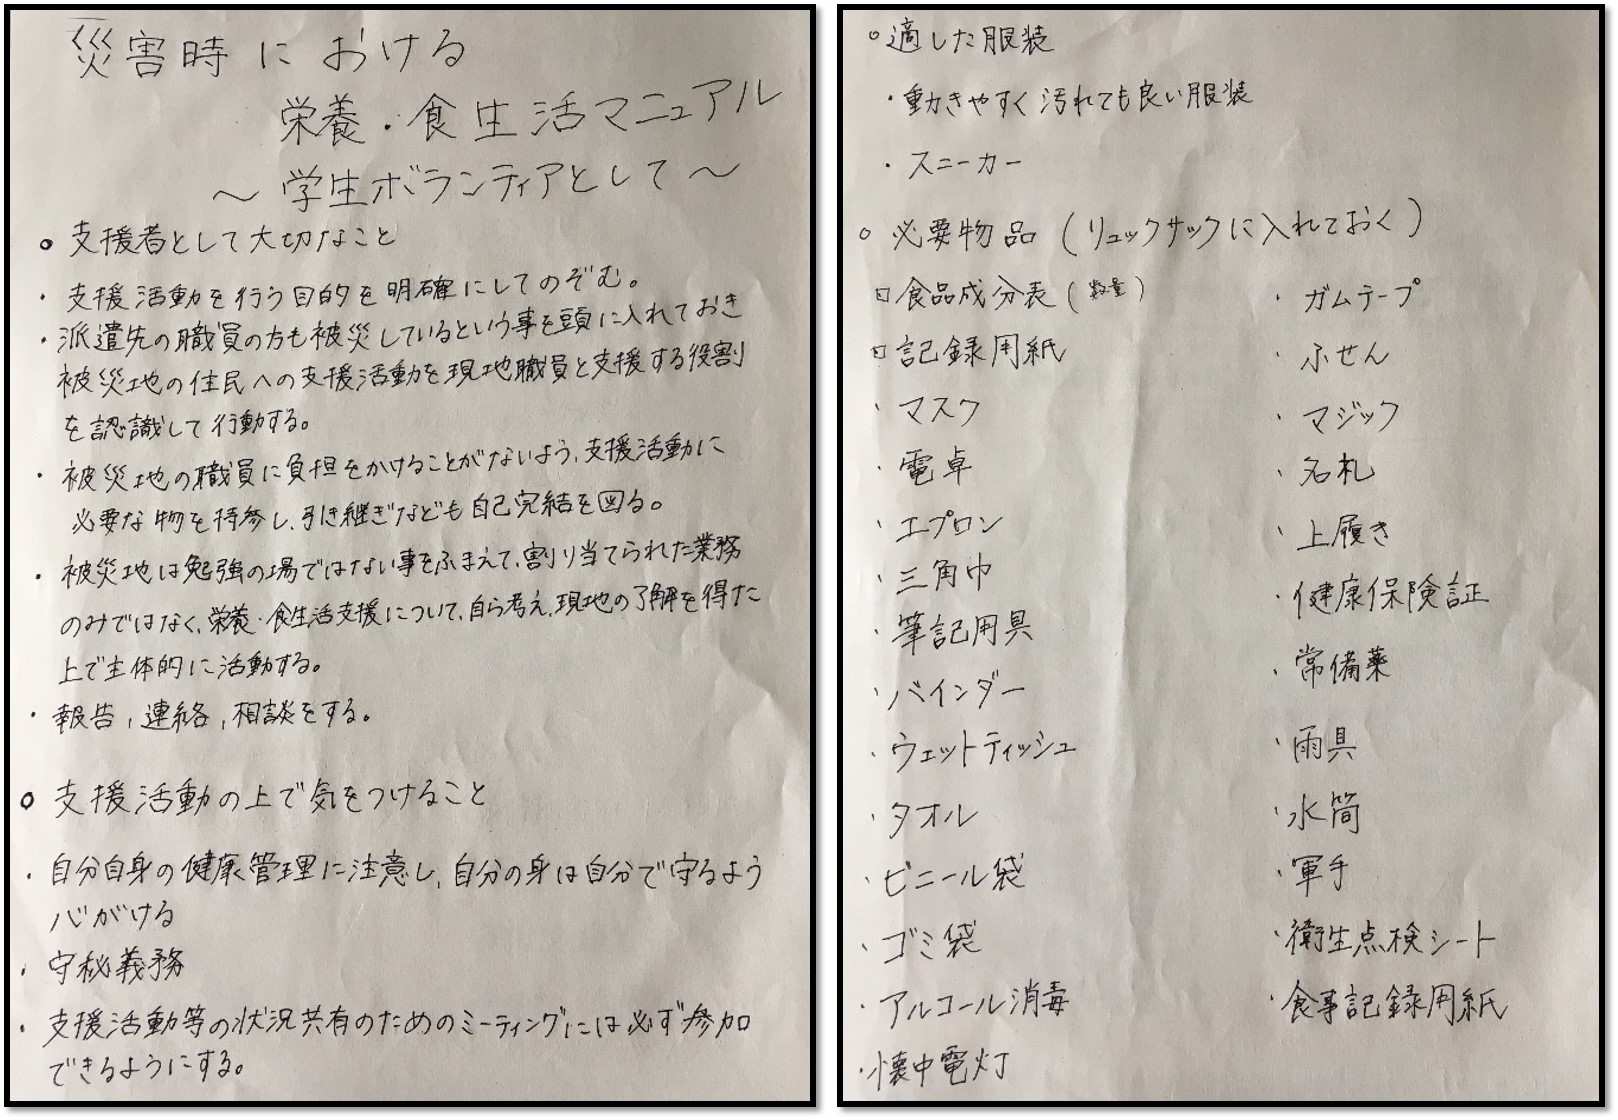 災害時における
栄養・食生活マニュアル
～学生ボランティアとして～
○支援者として大切なこと
・支援活動を行う目的を明確にしてのぞむ。
・派遣先の職員の方も被災しているという事を頭に入れておき
被災地の住民への支援活動を現地職員と支援する役割
を認識して行動する。
・被災地の職員に負担をかけることがないよう、支援活動に
必要な物を持参し、引き継ぎなども自己完結を図る。
・被災地は勉強の場ではない事をふまえて、割り当てられた業務
のみではなく、栄養・食生活支援について、自ら考え、現地の了解を得た
上で主体的に活動する。
・報告，連絡，相談をする。
○支援活動の上で気をつけること
・自分自身の健康管理に注意し、自分の身は自分で守るよう
心がける
・守秘義務
・支援活動等の状況共有のためのミーティングには必ず参加
できるようにする。
○適した服装
・動きやすく汚れても良い服装
・スニーカー
○必要物品（リュックサックに入れておく）
□食品成分表（数量）
□記録用紙
・マスク
・電卓
・エプロン
・三角巾
・筆記用具
・バインダー
・ウェットティッシュ
・タオル
・ビニール袋
・ゴミ袋
・アルコール消毒
・懐中電灯
・ガムテープ
・ふせん
・マジック
・名札
・上履き
・健康保険証
・常備薬
・雨具
・水筒
・軍手
・衛生点検シート
・食事記録用紙